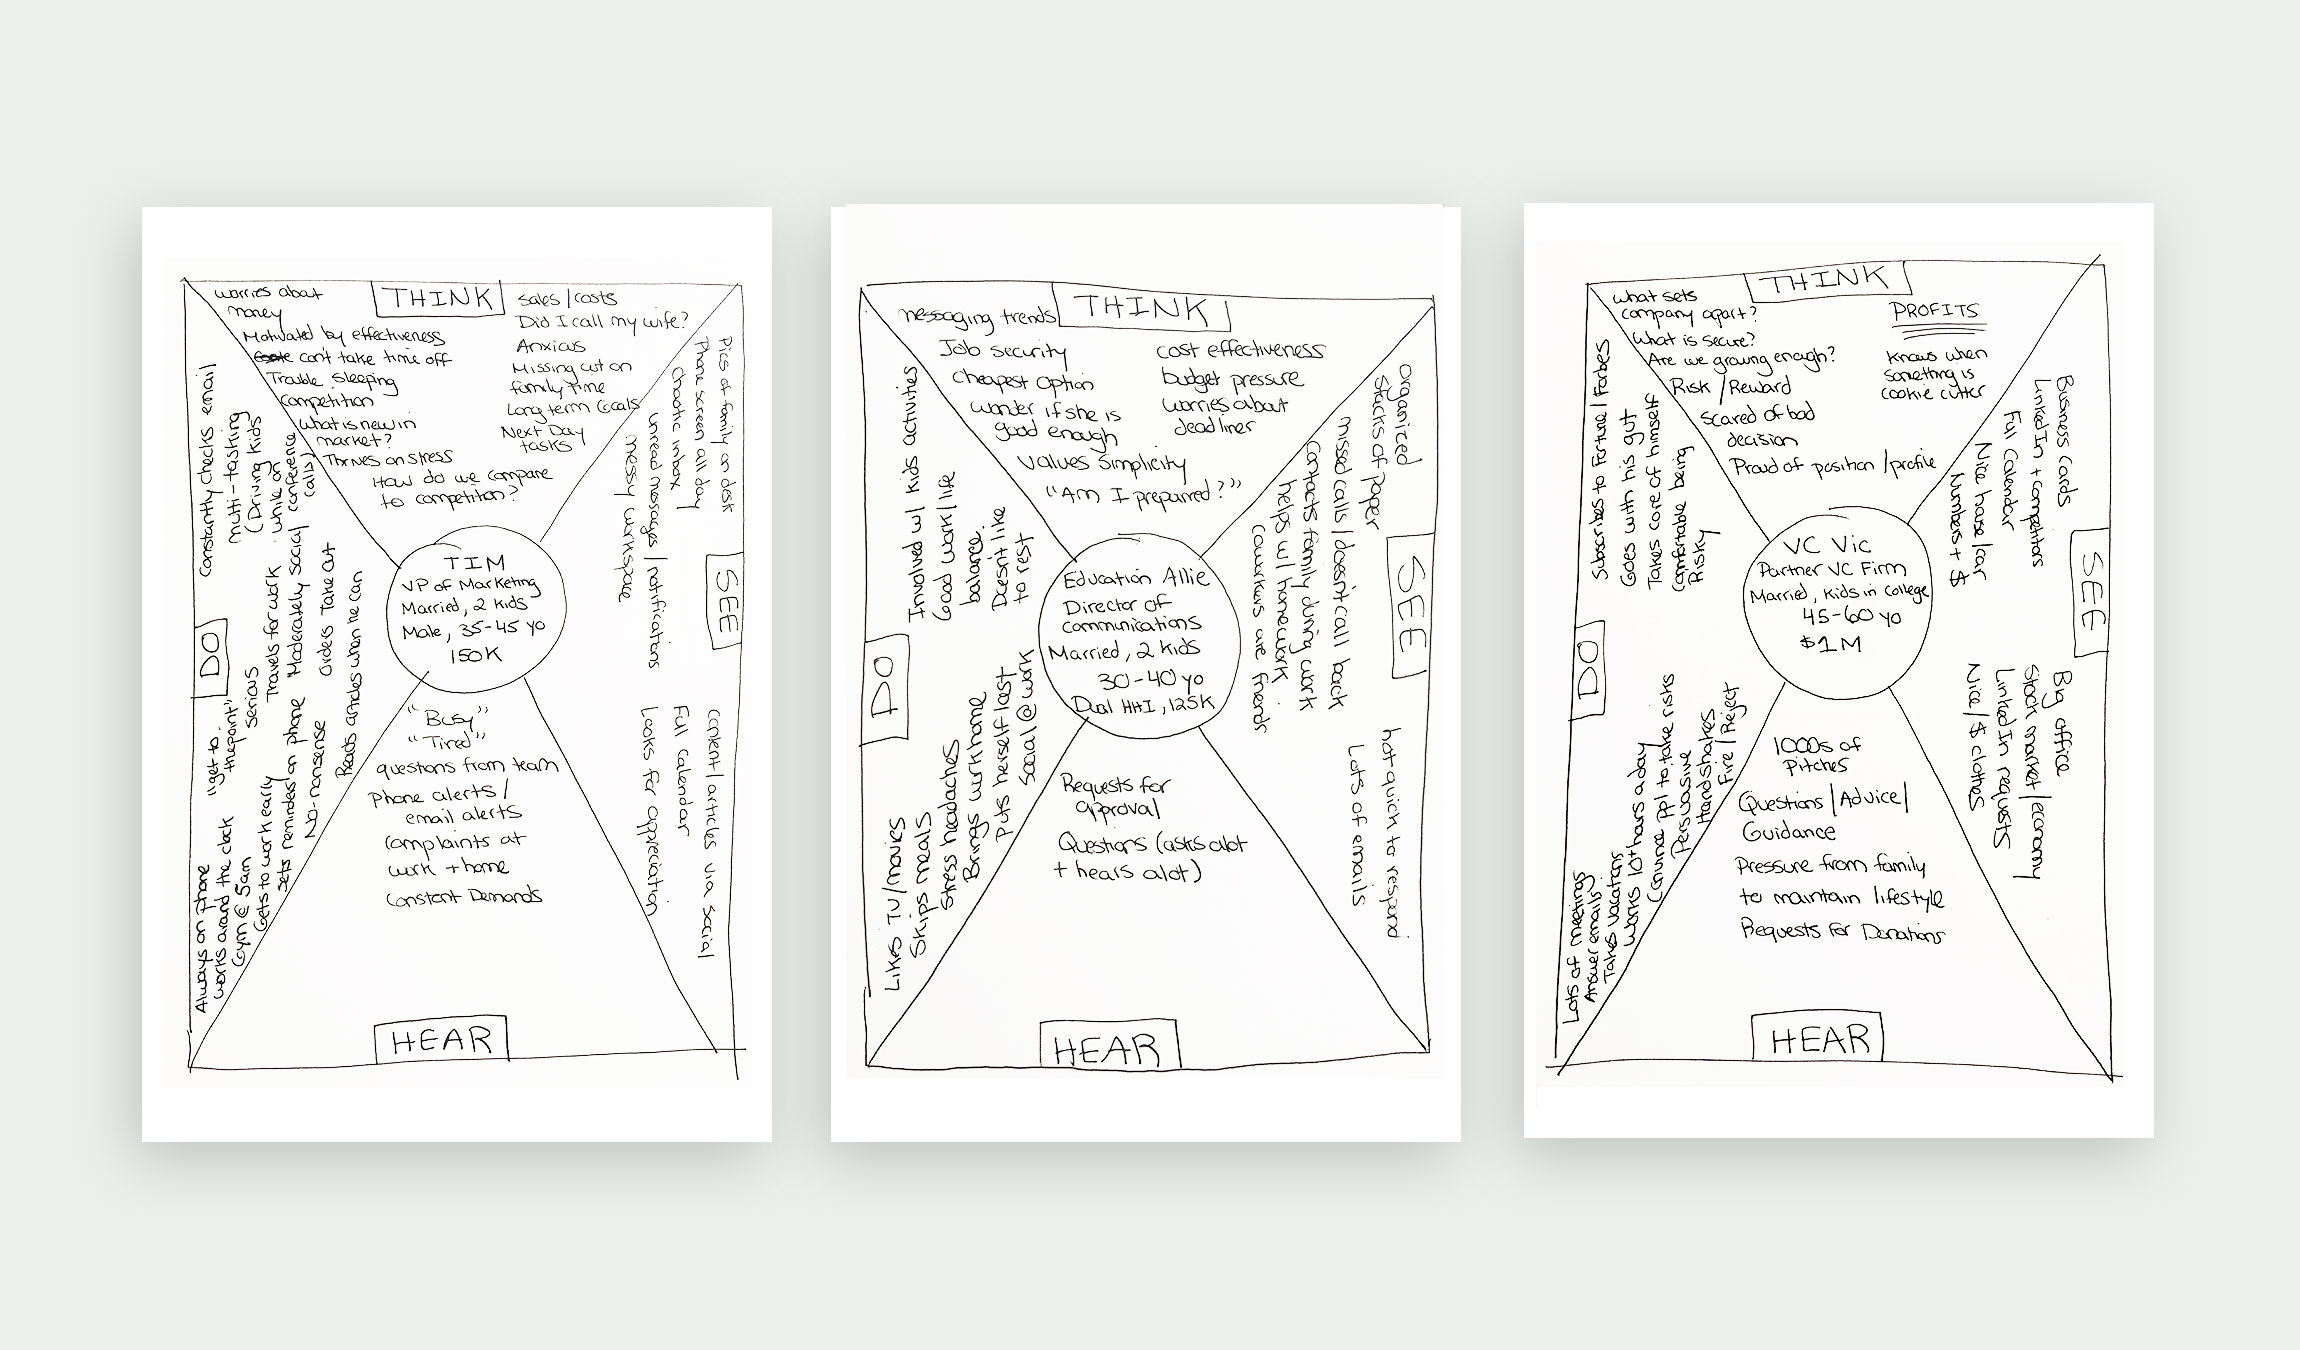 THINK
worries about
money
Motivated by effectiveness
can't take time off
Trouble sleeping
Competition
What is new in
market?
Thrives on stress
How do we compare
to competition?
Sales / costs
Did I call my wife?
Anxious
Missing out on
family time
Long term Goals
Next Day
tasks
SEE
Pics of family on desk
Phone screen all day
Chaotic inbox
unread messages / notifications
messy workspace
content/articles via social
Full calendar
Looks for appreciation
DO
Constantly checks email
multi-tasking
(Driving kids
while on
conference
calls)
Travels for work
Moderately social
Orders Take out
Reads articles when he can
"get to
the point"
serious
Always on phone
works around the clock
Gym @ 5am
Gets to work early
sets reminders on phone
No-nonsense
TIM
VP of Marketing
Married, 2 kids
Male, 35-45 yo
150K
"Busy"
"Tired"
questions from team
Phone alerts /
email alerts
Complaints at
work + home
Constant Demands
HEAR
THINK
messaging trends
Job security
Cheapest option
wonder if she is
good enough
Values simplicity
"Am I preparred?"
cost effectiveness
budget pressure
worries about
deadlines
SEE
organized
stacks of paper
missed calls / doesn't call back
Contacts family during work
helps w/ homework
Coworkers are friends
not quick to respond
Lots of emails
DO
Involved w/ kids activities
Good work/life
balance.
Doesn't like
to rest
Likes TV/movies
Skips meals
Stress headaches
Brings work home
Puts herself last
Social @ work
Education Allie
Director of
Communications
Married, 2 kids
30-40 yo
Dual HHI, 125K
Requests for
approval
Questions (asks alot
+ hears alot)
HEAR
THINK
What sets
company apart?
What is secure?
Are we growing enough?
Risk / Reward
Scared of bad
decision
Proud of position / profile
PROFITS
Knows when
something is
cookie cutter
SEE
Business Cards
LinkedIn + competitors
Full Calendar
Nice house / car
Numbers + $
Big office
Stock market / economy
LinkedIn requests
Nice / $ clothes
DO
Subscribes to Fortune / Forbes
Goes with his gut
Takes care of himself
Comfortable being
Risky
Lots of meetings
Answer emails
Takes vacations
Works 10+ hours a day
Convince ppl to take risks
Persuasive
Handshakes
Fire / Reject
VC Vic
Partner VC Firm
Married, Kids in College
45-60 yo
$1M
1000s of
Pitches
Questions / Advice /
Guidance
Pressure from family
to maintain lifestyle
Requests for Donations
HEAR